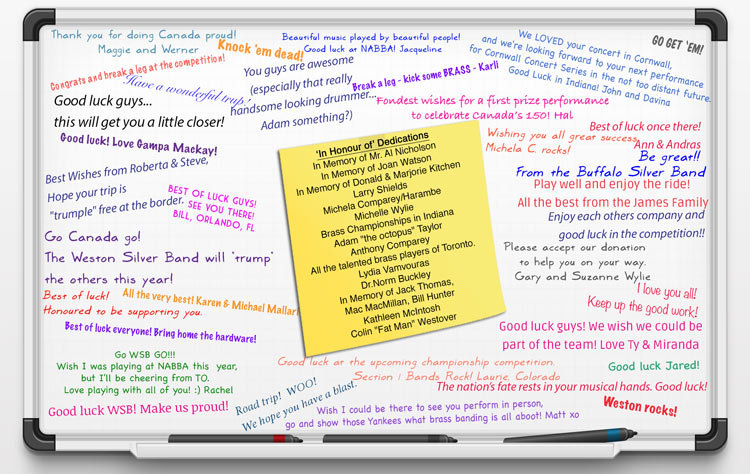 Thank you for doing Canada proud!
Maggie and Werner
Knock 'em dead!
Beautiful music played by beautiful people!
Good luck at NABBA! Jacqueline
We LOVED your concert in Cornwall,
and we're looking forward to your next performance
for Cornwall Concert Series in the not too distant future.
Good Luck in Indiana! John and Davina
GO GET 'EM!
Congrats and break a leg at the competition!
Have a wonderful trip!
You guys are awesome
(especially that really
handsome looking drummer...
Adam something?)
Break a leg - kick some BRASS - Karli
Good luck guys...
this will get you a little closer!
Fondest wishes for a first prize performance
to celebrate Canada's 150! Hal
Good luck! Love Gampa Mackay!
Wishing you all great success,
Michela C. rocks!
Best of luck once there!
Ann & Andras
Be great!!
From the Buffalo Silver Band
Best Wishes from Roberta & Steve,
Hope your trip is
"trumple" free at the border.
BEST OF LUCK GUYS!
SEE YOU THERE!
BILL, ORLANDO, FL
'In Honour of' Dedications
In Memory of Mr. Al Nicholson
In Memory of Joan Watson
In Memory of Donald & Marjorie Kitchen
Larry Shields
Michela Comparey/Harambe
Michelle Wylie
Brass Championships in Indiana
Adam "the octopus" Taylor
Anthony Comparey
All the talented brass players of Toronto.
Lydia Vamvouras
Dr.Norm Buckley
In Memory of Jack Thomas,
Mac MacMillan, Bill Hunter
Kathleen McIntosh
Colin "Fat Man" Westover
Play well and enjoy the ride!
All the best from the James Family
Enjoy each others company and
good luck in the competition!!
Go Canada go!
The Weston Silver Band will 'trump'
the others this year!
Please accept our donation
to help you on your way.
Gary and Suzanne Wylie
Best of luck!
Honoured to be supporting you.
All the very best! Karen & Michael Mallar
I love you all!
Keep up the good work!
Best of luck everyone! Bring home the hardware!
Good luck guys! We wish we could be
part of the team! Love Ty & Miranda
Go WSB GO!!!
Wish I was playing at NABBA this year,
but I'll be cheering from TO.
Love playing with all of you! :) Rachel
Good luck at the upcoming championship competition.
Section 1 Bands Rock! Laurie, Colorado
Good luck Jared!
The nation's fate rests in your musical hands. Good luck!
Good luck WSB! Make us proud!
Road trip! WOO!
We hope you have a blast.
Wish I could be there to see you perform in person,
go and show those Yankees what brass banding is all aboot! Matt xo
Weston rocks!